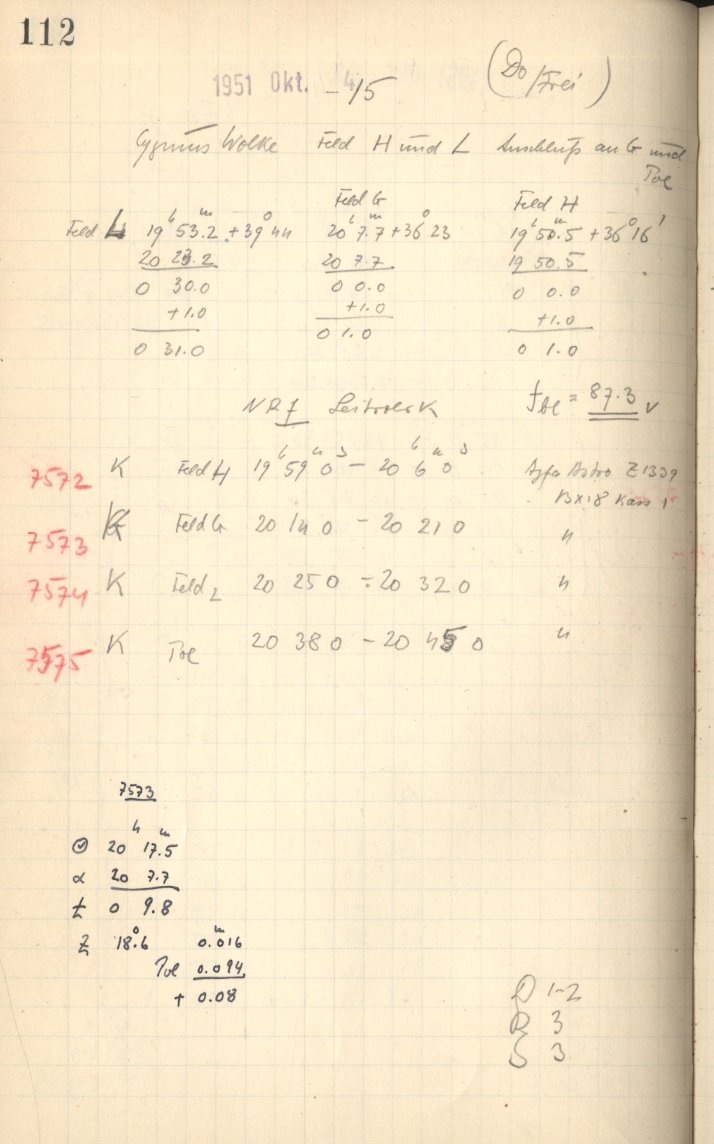 112
1951 Okt. 4/5 (Do/Frei)
Cygnus Wolke Feld H und L Anschluß an G und
Pol
Feld G Feld H
Feld L 19ʰ 53.ᵐ2 +39° 44 20ʰ 7.ᵐ7 +36° 23 19ʰ 50.ᵐ5 +36° 16'
20 23.2 20 7.7 19 50.5
0 30.0 0 0.0 0 0.0
+1.0 +1.0 +1.0
0 31.0 0 1.0 0 1.0
Leitrohr K = 87.3 v
7572 K Feld H 19ʰ 59ᵐ 0ˢ – 20ʰ 6ᵐ 0ˢ Agfa Astro Z 1339
13x18 Kass 1
7573 K Feld G 20 14 0 – 20 21 0 "
7574 K Feld L 20 25 0 – 20 32 0 "
7575 K Pol 20 38 0 – 20 45 0 "
7573
20ʰ 17.ᵐ5
α 20 7.7
t 0 9.8
z 18.°6 0.ᵐ016
Pol 0.094
+ 0.08
D 1-2
R 3
S 3